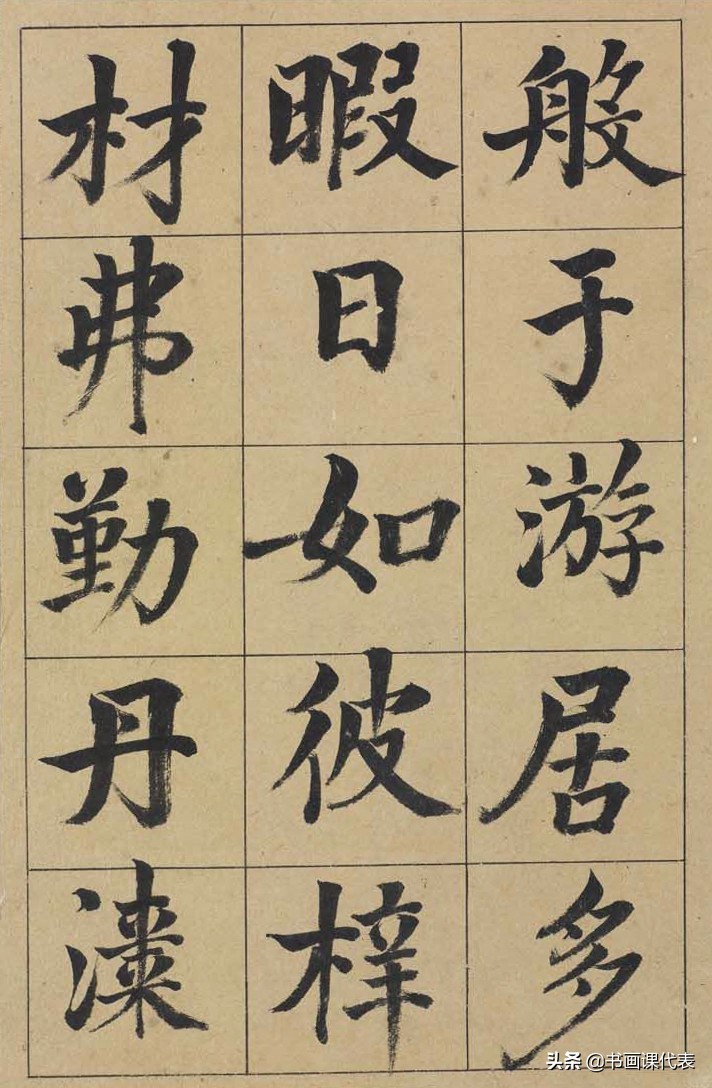 般于游居多
暇日如彼梓
材弗勤丹漆
头条 @书画课代表